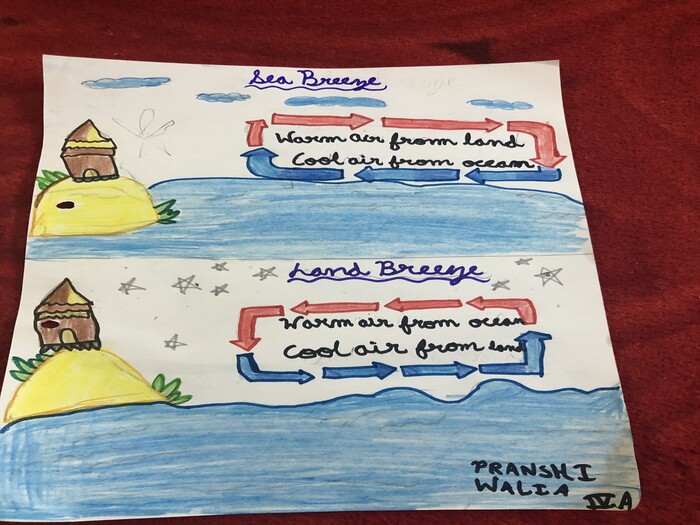 Sea Breeze
Warm air from land
Cool air from ocean
Land Breeze
Warm air from ocean
Cool air from land
PRANSHI
WALIA
IV A